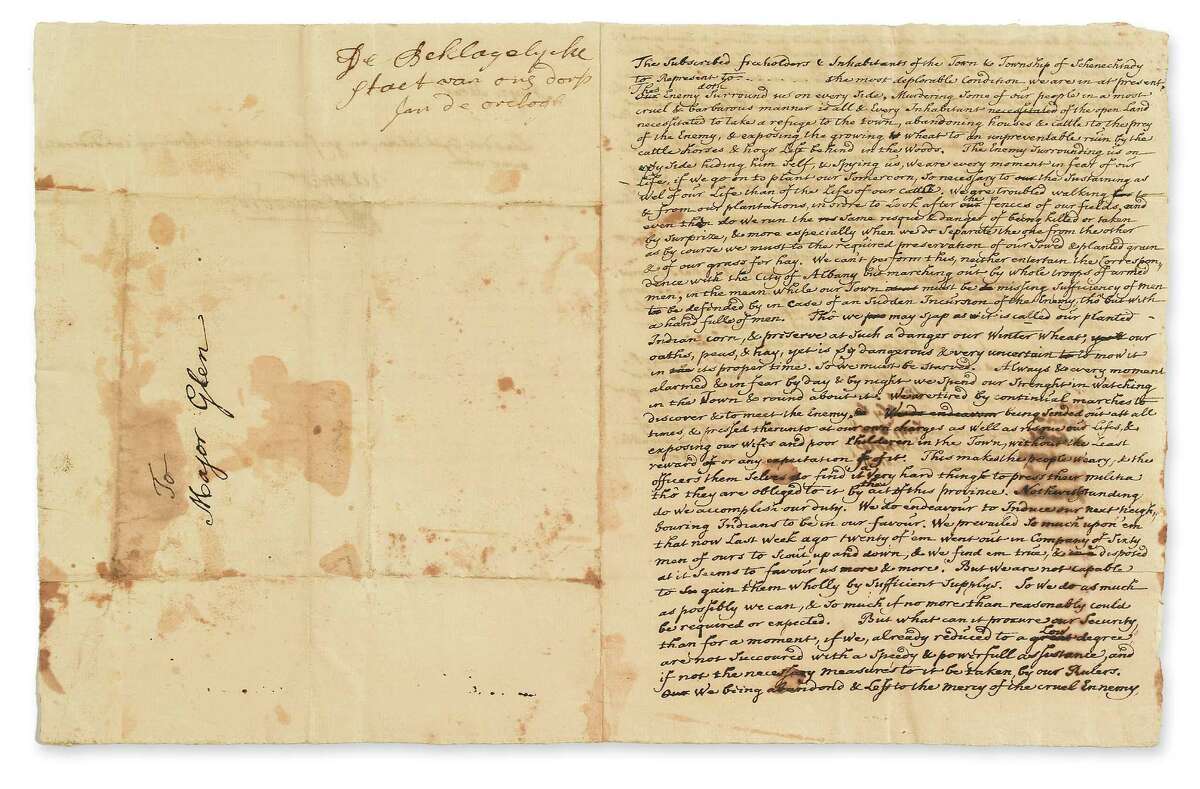 De Beklagelycke
staet van ons dorp
Jan de oorloog
To
Major Glen
The Subscribed freholders & Inhabitants of the Town & Township of Schenechtady
to Represent to the most deplorable Condition we are in at present,
The Enemy Surround us on every Side, Murdering Some of our people in a most
cruel & barbarous manner is all & Every Inhabitant necessitated of the open Land
necessitated to take a refuge to the town, abandoning houses & cattle to the prey
of the Enemy, & exposing the growing wheat to an unpreventable ruin by the
cattle horses & hogs Left behind in the Woods. The Enemy Surrounding us on
Side hiding him Self, & Spying us, we are every moment in fear of our
Life, if we go on to plant our Somercorn, So necessary to our the Sustaining as
wel of our Life than of the Life of our cattle, we are troubled walking to
& from our plantations, in ordre to Look after our the fences of our fields, and
even do we run the Same risque & danger of being killed or taken
by Surprize, & more especially when we do Separate the one from the other
as by course we must to the required preservation of our Sowed & planted grain
& of our grass for hay. We can't perform this, neither entertain the Correspon,
dence with the City of Albany but marching out by whole troops of armed
men, in the mean while our Town must be missing Sufficiency of men
to be defended by in Case of an Sudden Incursion of the Enemy, tho but with
a hand full of men. Tho we may is called our planted
Indian corn, & preserve at Such a danger our Winter Wheat, our
oaths, peas, & hay, yet is So dangerous & very uncertain to mow it
in its proper time. So we must be Starved. Always & every moment
alarmed & in fear by day & by night we Spend our Strenght in watching
in the Town & round about it. We are tired by continual marches to
discover & to meet the Enemy, We do endeavour being Sended out att all
times, & pressed therunto at our own charges as well as risque our Lifes, &
exposing our Wifes and poor Childeren in the Town, without the Least
reward or any expectation of it. This makes the people weary, & the
officers them Selves do find it a very hard thing to press their militia
tho they are obliged to it by act of this province. Nothwitstanding
do we accomplish our duty. We do endeavour to Induce our next neigh,,
bouring Indians to be in our favour. We prevailed So much upon 'em
that now Last week ago twenty of em went out in Company of Sixty
men of ours to Scout up and down, & we find em true, & disposed
as it Seems to favour us more & more. But we are not capable
to gain them wholly by Sufficient Supplys. So we do as much
as possibly we can, & So much if no more than reasonably could
be required or expected. But what can it procure our Security
than for a moment, if we, already reduced to a great Low degree
are not Succoured with a Speedy & powerfull assistance, and
if not the necessary measures to it be taken, by our Rulers.
Our We being abandond & Left to the mercy of the cruel Ennemy